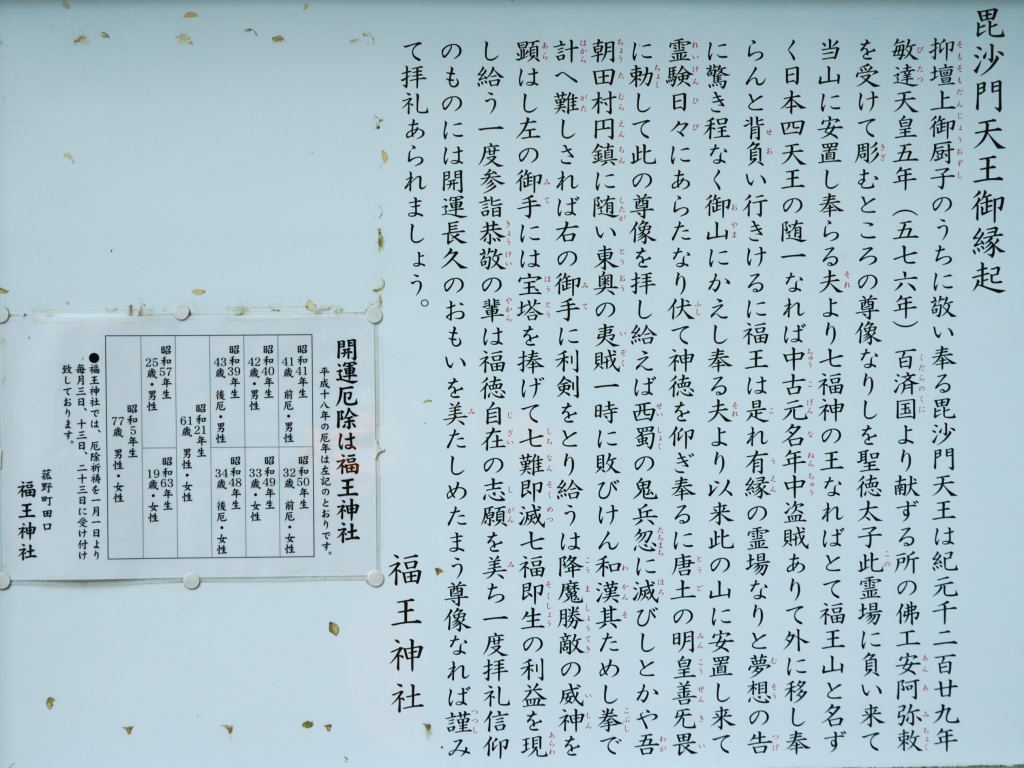 毘沙門天王御縁起
抑壇上御厨子のうちに敬い奉る毘沙門天王は紀元千二百廿九年
敏達天皇五年（五七六年）百済国より献ずる所の佛工安阿弥敕
を受けて彫むところの尊像なりしを聖徳太子此霊場に負い来て
当山に安置し奉らる夫より七福神の王なればとて福王山と名ず
く日本四天王の随一なれば中古元名年中盗賊ありて外に移し奉
らんと背負い行きけるに福王は是れ有縁の霊場なりと夢想の告
に驚き程なく御山にかえし奉る夫より以来此の山に安置し来て
霊験日々にあらたなり伏て神徳を仰ぎ奉るに唐土の明皇善旡畏
に勅して此の尊像を拝し給えば西蜀の鬼兵忽に滅びしとかや吾
朝田村円鎮に随い東奥の夷賊一時に敗びけん和漢其ためし拳で
計へ難しされば右の御手に利剣をとり給うは降魔勝敵の威神を
顕はし左の御手には宝塔を捧げて七難即滅七福即生の利益を現
し給う一度参詣恭敬の輩は福徳自在の志願を美ち一度拝礼信仰
のものには開運長久のおもいを美たしめたまう尊像なれば謹み
て拝礼あられましょう。
福王神社
開運厄除は福王神社
平成十八年の厄年は左記のとおりです。
昭和41年生
41歳 前厄・男性
昭和50年生
32歳 前厄・女性
昭和40年生
42歳・男性
昭和49年生
33歳・女性
昭和39年生
43歳 後厄・男性
昭和48年生
34歳 後厄・女性
昭和21年生
61歳 男性・女性
昭和57年生
25歳・男性
昭和63年生
19歳・女性
昭和5年生
77歳 男性・女性
●福王神社では、厄除祈祷を一月一日より
毎月三日、十三日、二十三日に受け付け
致しております。
菰野町田口
福王神社